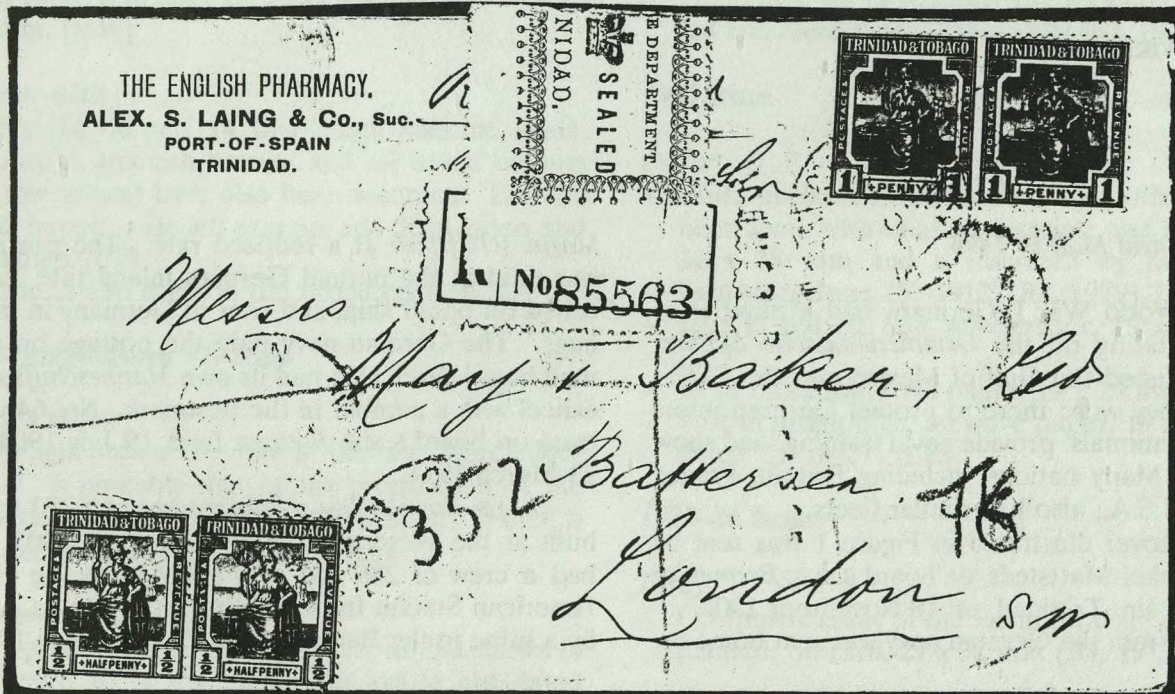 THE ENGLISH PHARMACY.
ALEX. S. LAING & Co., Suc.
PORT-OF-SPAIN
TRINIDAD.
NIDAD.
SEALED
E DEPARTMENT
TRINIDAD & TOBAGO
POSTAGE REVENUE
1 PENNY 1
TRINIDAD & TOBAGO
POSTAGE REVENUE
1 PENNY 1
No 85563
Messrs
May & Baker, Ld
Battersea
London SW
TRINIDAD & TOBAGO
POSTAGE REVENUE
1/2 HALFPENNY 1/2
TRINIDAD & TOBAGO
POSTAGE REVENUE
1/2 HALFPENNY 1/2